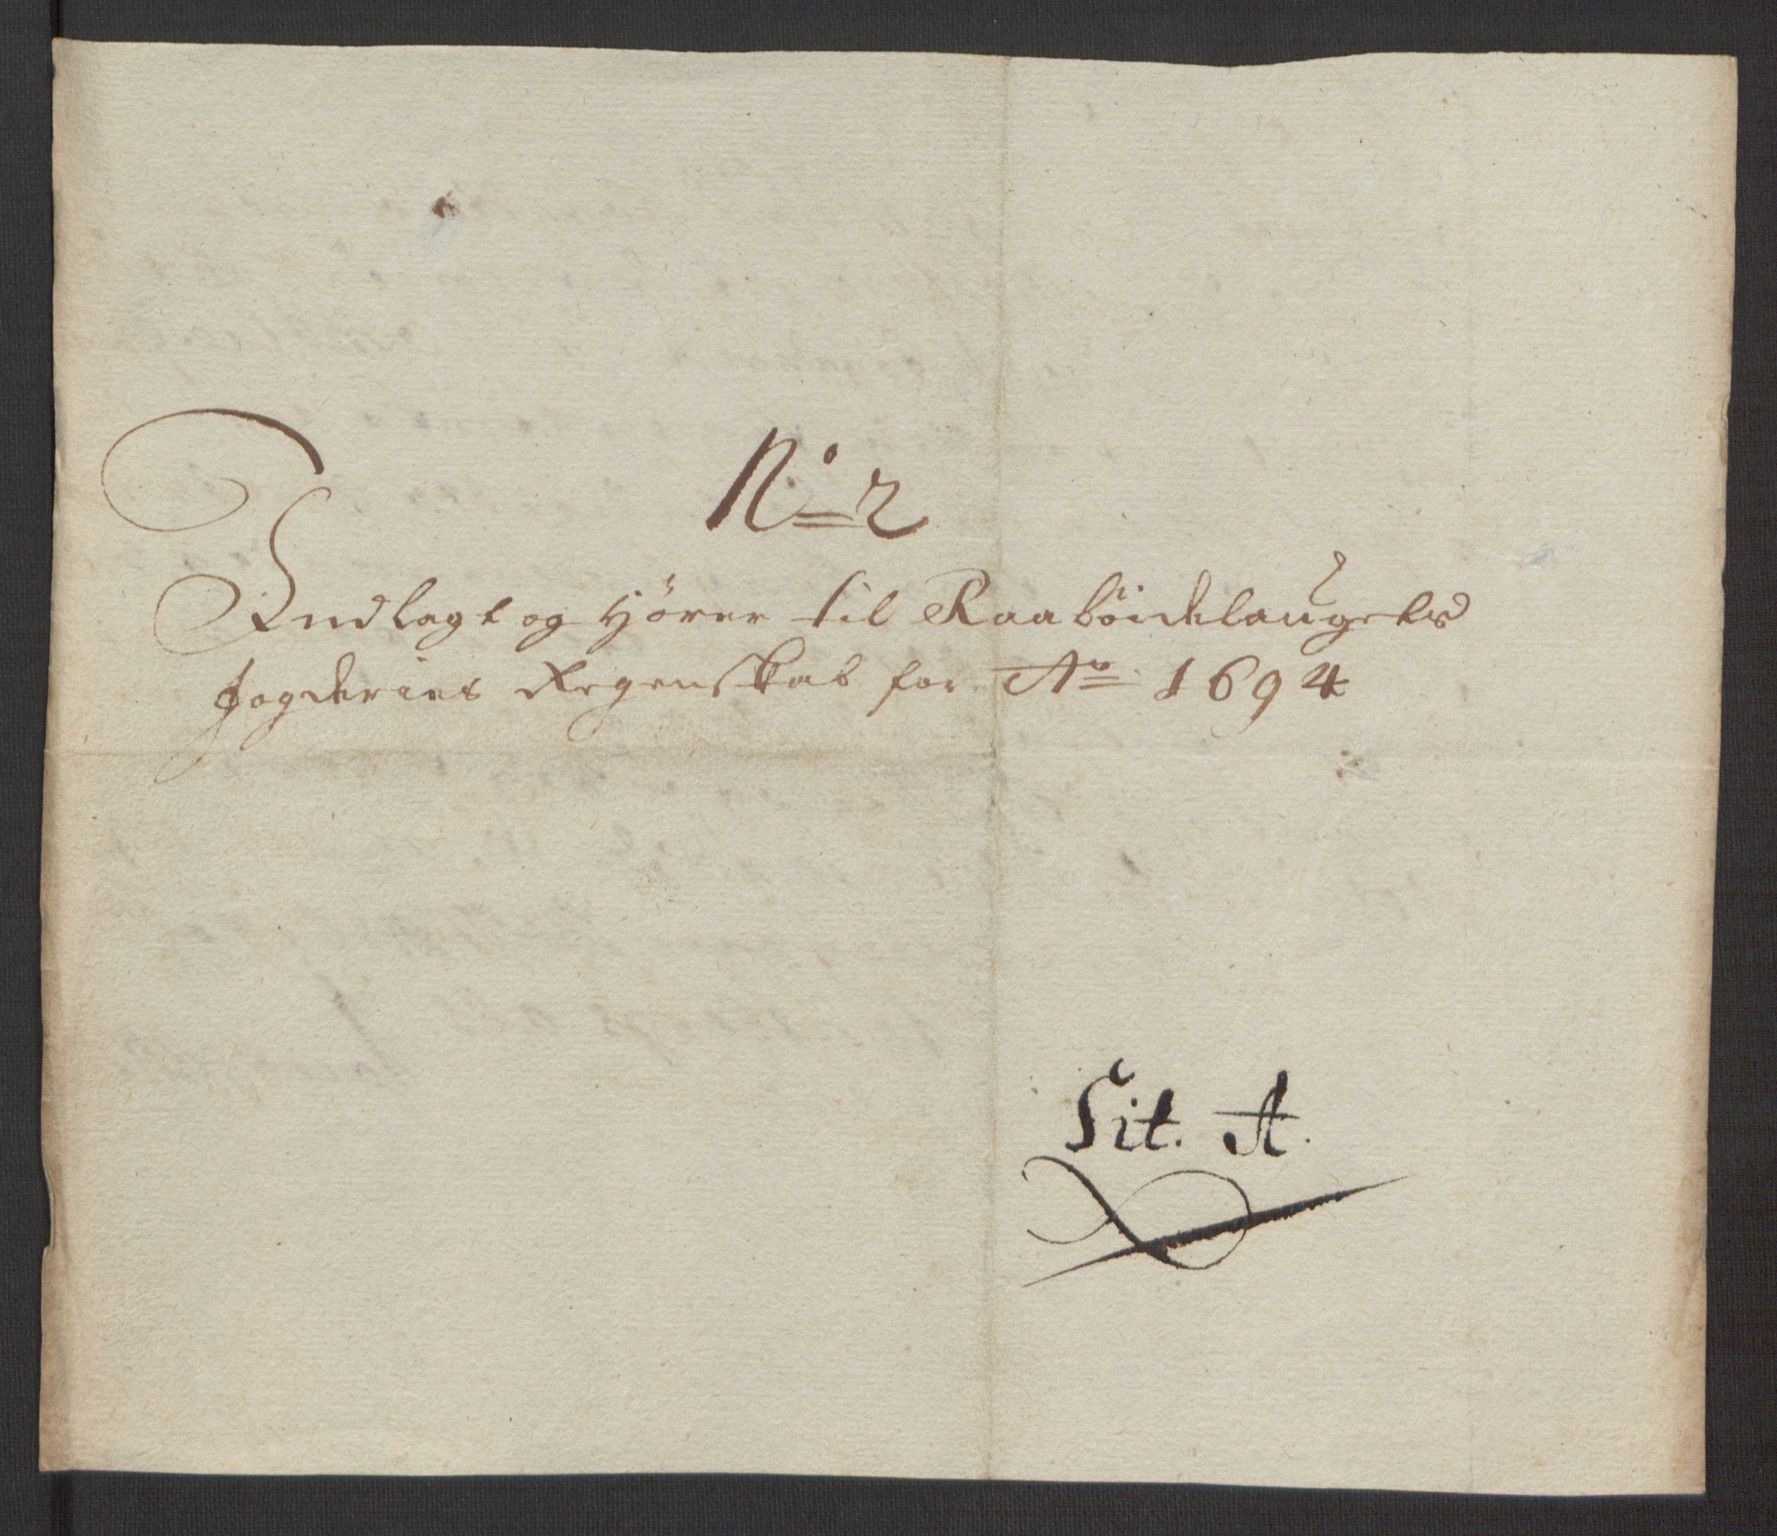 No 2
Indlagt og hörer til Raaböidelaugets
fogderies Regenskab for Ao 1694
Lit. A.